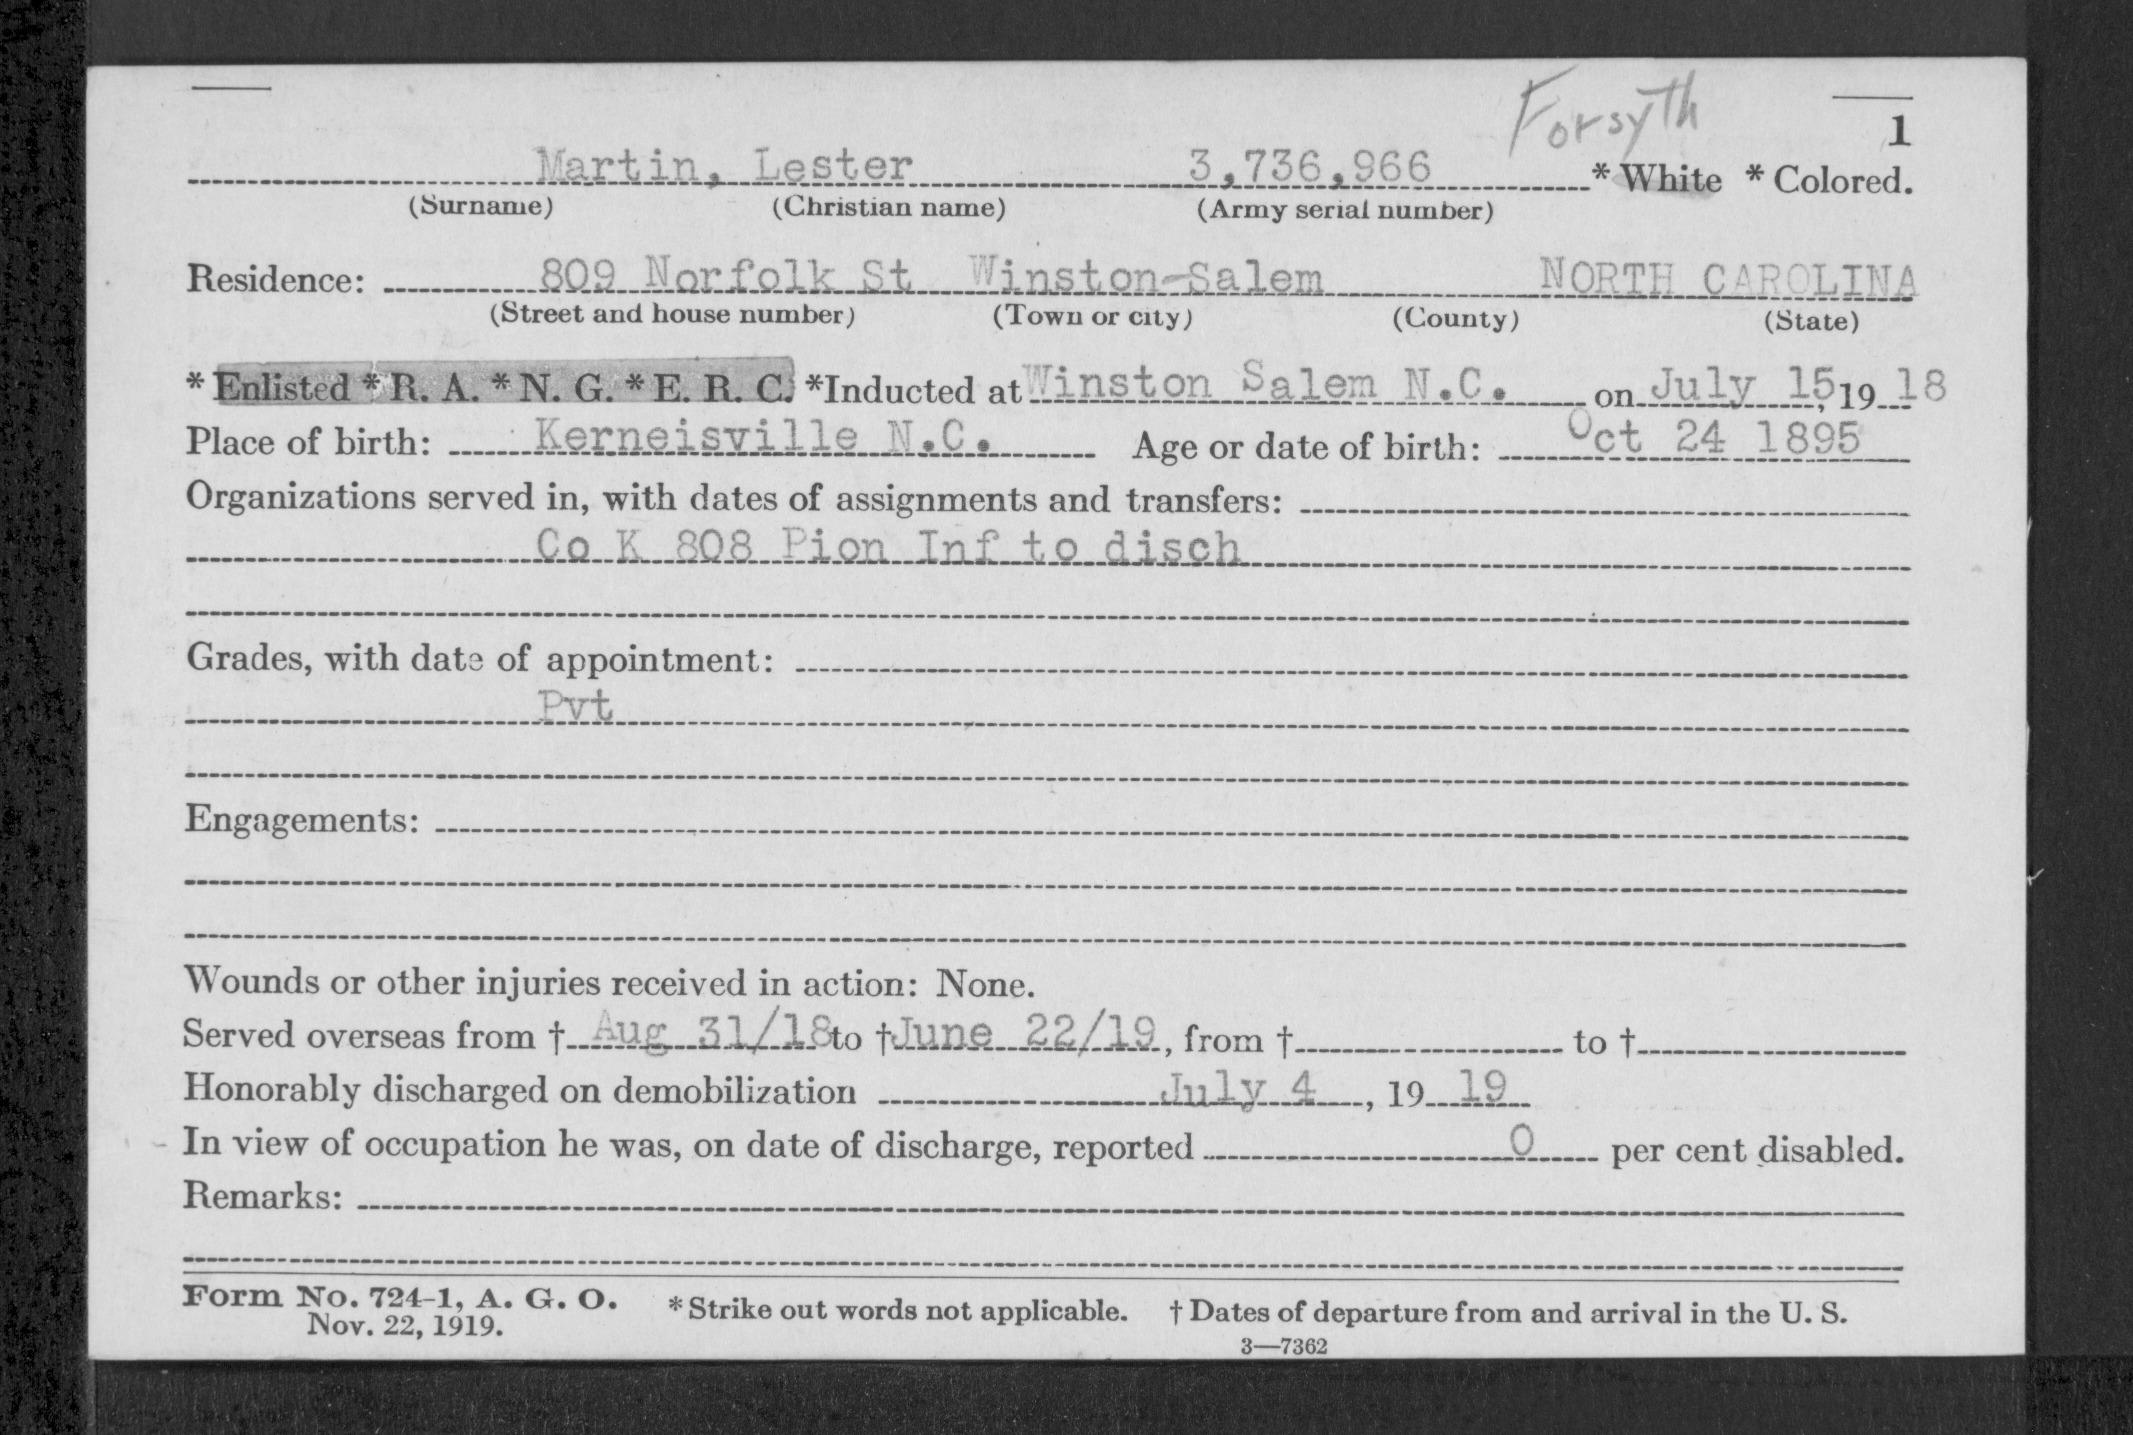 Forsyth
1
Martin, Lester 3,736,966 * White * Colored.
(Surname) (Christian name) (Army serial number)
Residence: 809 Norfolk St Winston-Salem NORTH CAROLINA
(Street and house number) (Town or city) (County) (State)
* Enlisted * R. A. * N. G. * E. R. C. *Inducted at Winston Salem N.C. on July 15, 19 18
Place of birth: Kerneisville N.C. Age or date of birth: Oct 24 1895
Organizations served in, with dates of assignments and transfers:
Co K 808 Pion Inf to disch
Grades, with date of appointment:
Pvt
Engagements:
Wounds or other injuries received in action: None.
Served overseas from † Aug 31/18 to † June 22/19, from † to †
Honorably discharged on demobilization July 4, 19 19
In view of occupation he was, on date of discharge, reported 0 per cent disabled.
Remarks:
Form No. 724-1, A. G. O. * Strike out words not applicable. † Dates of departure from and arrival in the U. S.
Nov. 22, 1919.
3—7362